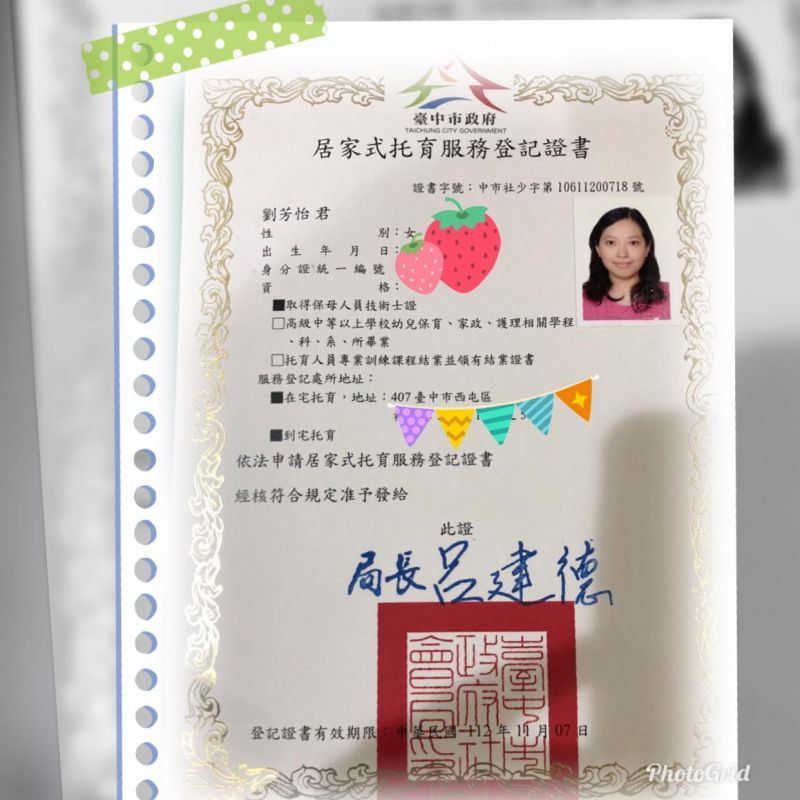 臺中市政府
TAICHUNG CITY GOVERNMENT
居家式托育服務登記證書
證書字號：中市社少字第 10611200718 號
劉芳怡 君
性別：女
出生年月日：
身分證統一編號
資格：
■取得保母人員技術士證
□高級中等以上學校幼兒保育、家政、護理相關學程
、科、系、所畢業
□托育人員專業訓練課程結業並領有結業證書
服務登記處所地址：
■在宅托育，地址：407 臺中市西屯區
■到宅托育
依法申請居家式托育服務登記證書
經核符合規定准予發給
此證
局長 呂建德
臺中市政府社會局印
登記證書有效期限：中華民國 112 年 11 月 07 日
PhotoGrid